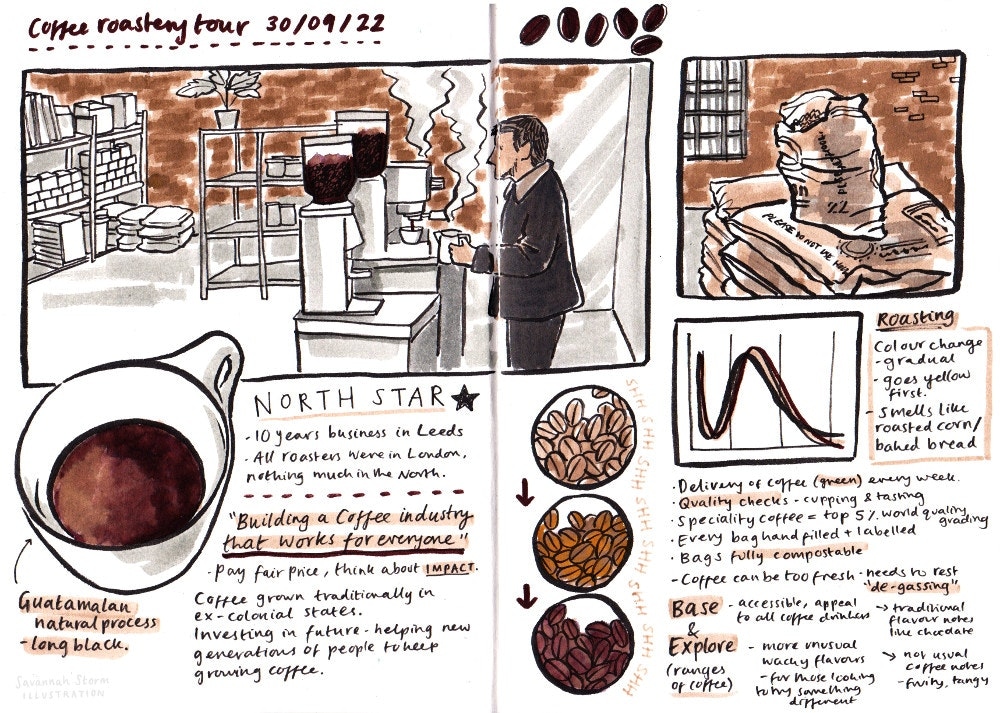 Coffee roastery tour 30/09/22
PLEASE DO NOT
NORTH STAR
- 10 years business in Leeds
- All roasters were in London,
nothing much in the North.
"Building a Coffee industry
that works for everyone"
- Pay fair price, think about IMPACT.
Coffee grown traditionally in
ex-colonial states.
Investing in future - helping new
generations of people to keep
growing coffee.
Guatamalan
natural process
- long black.
Savannah Storm
ILLUSTRATION
SHH SHH SHH SHH SHH SHH SHH
Roasting
Colour change
- gradual
- goes yellow
first.
- smells like
roasted corn/
baked bread
- Delivery of coffee (green) every week.
- Quality checks - cupping & tasting
- Speciality coffee = top 5% world quality
grading
- Every bag hand filled + labelled
- Bags fully compostable
- Coffee can be too fresh - needs to rest
"de-gassing"
Base - accessible, appeal
to all coffee drinkers
→ traditional
flavour notes
like chocolate
&
Explore
(ranges
of coffee)
- more unusual
wacky flavours
- for those looking
to try something
different
→ not usual
coffee notes
- fruity, tangy